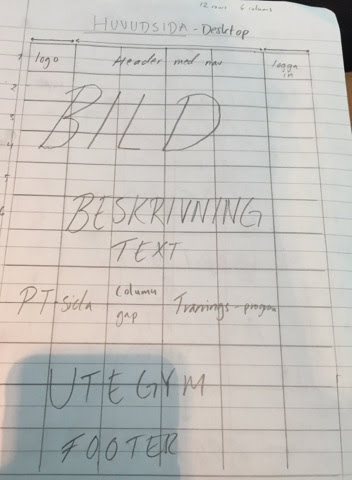 12 rows 6 columns
HUVUDSIDA - Desktop
logo Header med nav logga in
1
2
3
4
5
6
BILD
BESKRIVNING
TEXT
PT-sida column gap Tränings-program
UTEGYM
FOOTER